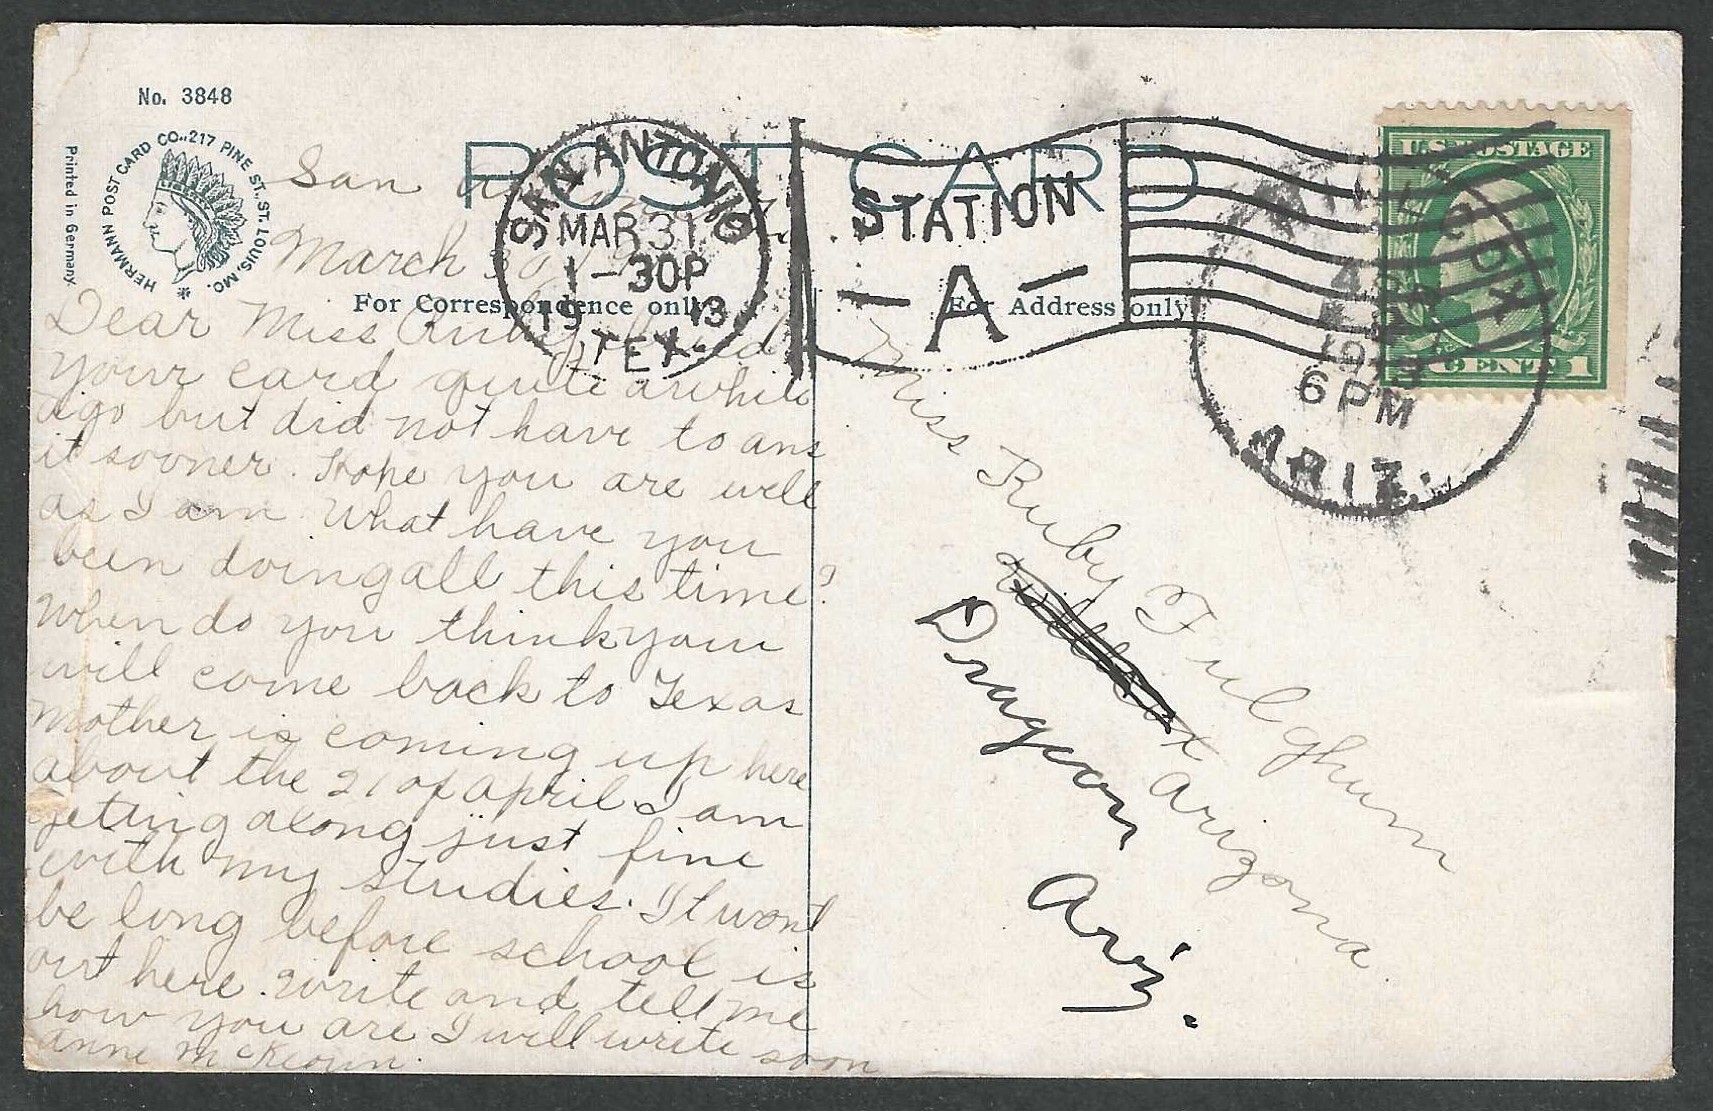 No. 3848
HERMANN POST CARD CO., 217 PINE ST. ST. LOUIS, MO.
Printed in Germany.
POST CARD
For Correspondence only
For Address only
SAN ANTONIO
MAR 31
1-30P
1913
TEX.
STATION
A
U.S. POSTAGE
CENT 1
WILLCOX
APR
1913
6PM
ARIZ.
San
March 30
Dear Miss Ruby
your card quite awhile
ago but did not have to ans
it sooner. Hope you are well
as I am. What have you
been doing all this time?
When do you think you
will come back to Texas
Mother is coming up here
about the 21 of april. I am
getting along just fine
with my studies. It wont
be long before school is
out here. Write and tell me
how you are I will write soon
Anne McKeown.
Miss Ruby Fulghum
Willcox
Arizona.
Dragoon
Ariz.